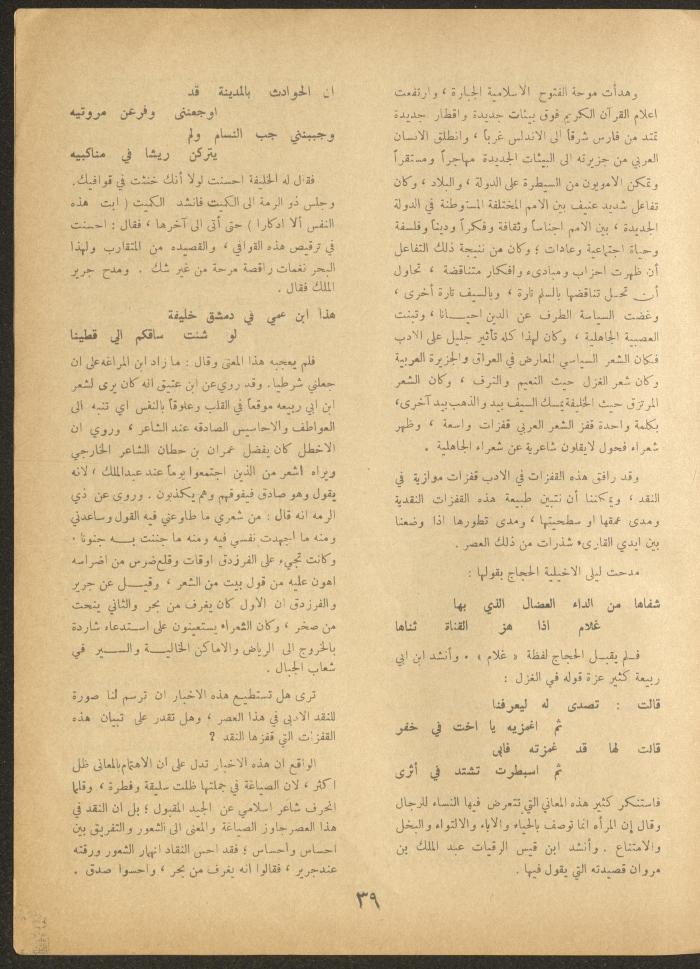 وهدأت موجة الفتوح الاسلامية الجبارة ، وارتفعت
اعلام القرآن الكريم فوق بيئات جديدة واقطار جديدة
تمتد من فارس شرقاً الى الاندلس غرباً ، وانطلق الانسان
العربي من جزيرته الى البيئات الجديدة مهاجراً ومستقراً
وتمكن الامويون من السيطرة على الدولة ، والبلاد ، وكان
تفاعل شديد عنيف بين الامم المختلفة المستوطنة في الدولة
الجديدة ، بين الامم اجناساً وثقافة وفكراً وديناً وفلسفة
وحياة اجتماعية وعادات ؛ وكان من نتيجة ذلك التفاعل
أن ظهرت احزاب ومبادىء وافكار متناقضة ، تحاول
أن تحل تناقضها بالسلم تارة ، وبالسيف تارة أخرى ،
وغضت السياسة الطرف عن الدين احياناً ، وتبنت
العصبية الجاهلية ، وكان لهذا كله تأثير جليل على الادب
فكان الشعر السياسي المعارض في العراق والجزيرة العربية
وكان شعر الغزل حيث النعيم والترف ، وكان الشعر
المرتزق حيث الخليفة يمسك السيف بيد والذهب بيد آخرى،
بكلمة واحدة قفز الشعر العربي قفزات واسعة ، وظهر
شعراء فحول لايقلون شاعرية عن شعراء الجاهلية .
وقد رافق هذه القفزات في الادب قفزات موازية في
النقد ، ويمكننا أن نتبين طبيعة هذه القفزات النقدية
ومدى عمقها او سطحيتها ، ومدى تطورها اذا وضعنا
بين ايدي القارىء شذرات من ذلك العصر .
مدحت ليلى الاخيلية الحجاج بقولها :
شفاها من الداء العضال الذي بها
غلام اذا هز القناة ثناها
فلم يقبل الحجاج لفظة « غلام » . وأنشد ابن ابي
ربيعة كثير عزة قوله في الغزل :
قالت : تصدى له ليعرفنا
ثم اغمزيه يا اخت في خفر
قالت لها قد غمزته فابى
ثم اسبطرت تشتد في أثرى
فاستنكر كثير هذه المعاني التي تتعرض فيها النساء للرجال
وقال إن المرأه انما توصف بالحياء والاباء والالتواء والبخل
والامتناع . وأنشد ابن قيس الرقيات عبد الملك بن
مروان قصيدته التي يقول فيها .
ان الحوادث بالمدينة قد
اوجعنني وفرعن مروتيه
وجببنني جب النسام ولم
يتركن ريشا في مناكبيه
فقال له الخليفة احسنت لولا أنك خنثت في قوافيك.
وجلس ذو الرمة الى الكميت فانشد الكميت ( ابت هذه
النفس ألا ادكارا ) حتى أتى الى آخرها ، فقال : احسنت
في ترقيص هذه القوافي ، والقصيده من المتقارب ولهذا
البحر نغمات راقصة مرحة من غير شك . ومدح جرير
الملك فقال .
هذا ابن عمي في دمشق خليفة
لو شئت ساقكم الي قطينا
فلم يعجبه هذا المعنى وقال : ما زاد ابن المراغه على ان
جعلني شرطيا. وقد روي عن ابن عتيق انه كان يرى لشعر
ابن ابي ربيعه موقعاً في القلب وعلوقاً بالنفس اي تنبه الى
العواطف والاحاسيس الصادقه عند الشاعر ، وروي ان
الاخطل كان يفضل عمران بن حطان الشاعر الخارجي
ويراه اشعر من الذين اجتمعوا يوماً عند عبدالملك ، لانه
يقول وهو صادق فيفوقهم وهم يكذبون . وروى عن ذي
الرمه انه قال : من شعري ما طاوعني فيه القول وساعدني
ومنه ما اجهدت نفسي فيه ومنه ما جننت بـــه جنونا .
وكانت تجيء على الفرزدق اوقات وقلع ضرس من اضراسه
اهون عليه من قول بيت من الشعر ، وقيـــل عن جرير
والفرزدق ان الأول كان يغرف من بحر والثاني ينحت
من صخر ، وكان الشعراء يستعينون على استدعاء شاردة
بالخروج الى الرياض والاماكن الخاليـــة والســـير في
شعاب الجبال .
ترى هل تستطيع هذه الاخبار ان ترسم لنا صورة
للنقد الادبي في هذا العصر ، وهل تقدر على تبيان هذه
القفزات التي قفزها النقد ؟
الواقع ان هذه الاخبار تدل على أن الاهتمام بالمعانى ظل
اكثر ، لان الصياغة في جملتها ظلت سليقة وفطرة ، وقلما
انحرف شاعر اسلامي عن الجيد المقبول ؛ بل ان النقد في
هذا العصر جاوز الصياغة والمعنى الى الشعور والتفريق بين
احساس وأحساس ؛ فقد احس النقاد انهيار الشعور ورقته
عند جرير ، فقالوا انه يغرف من بحر ، واحسوا صدق .
٣٩